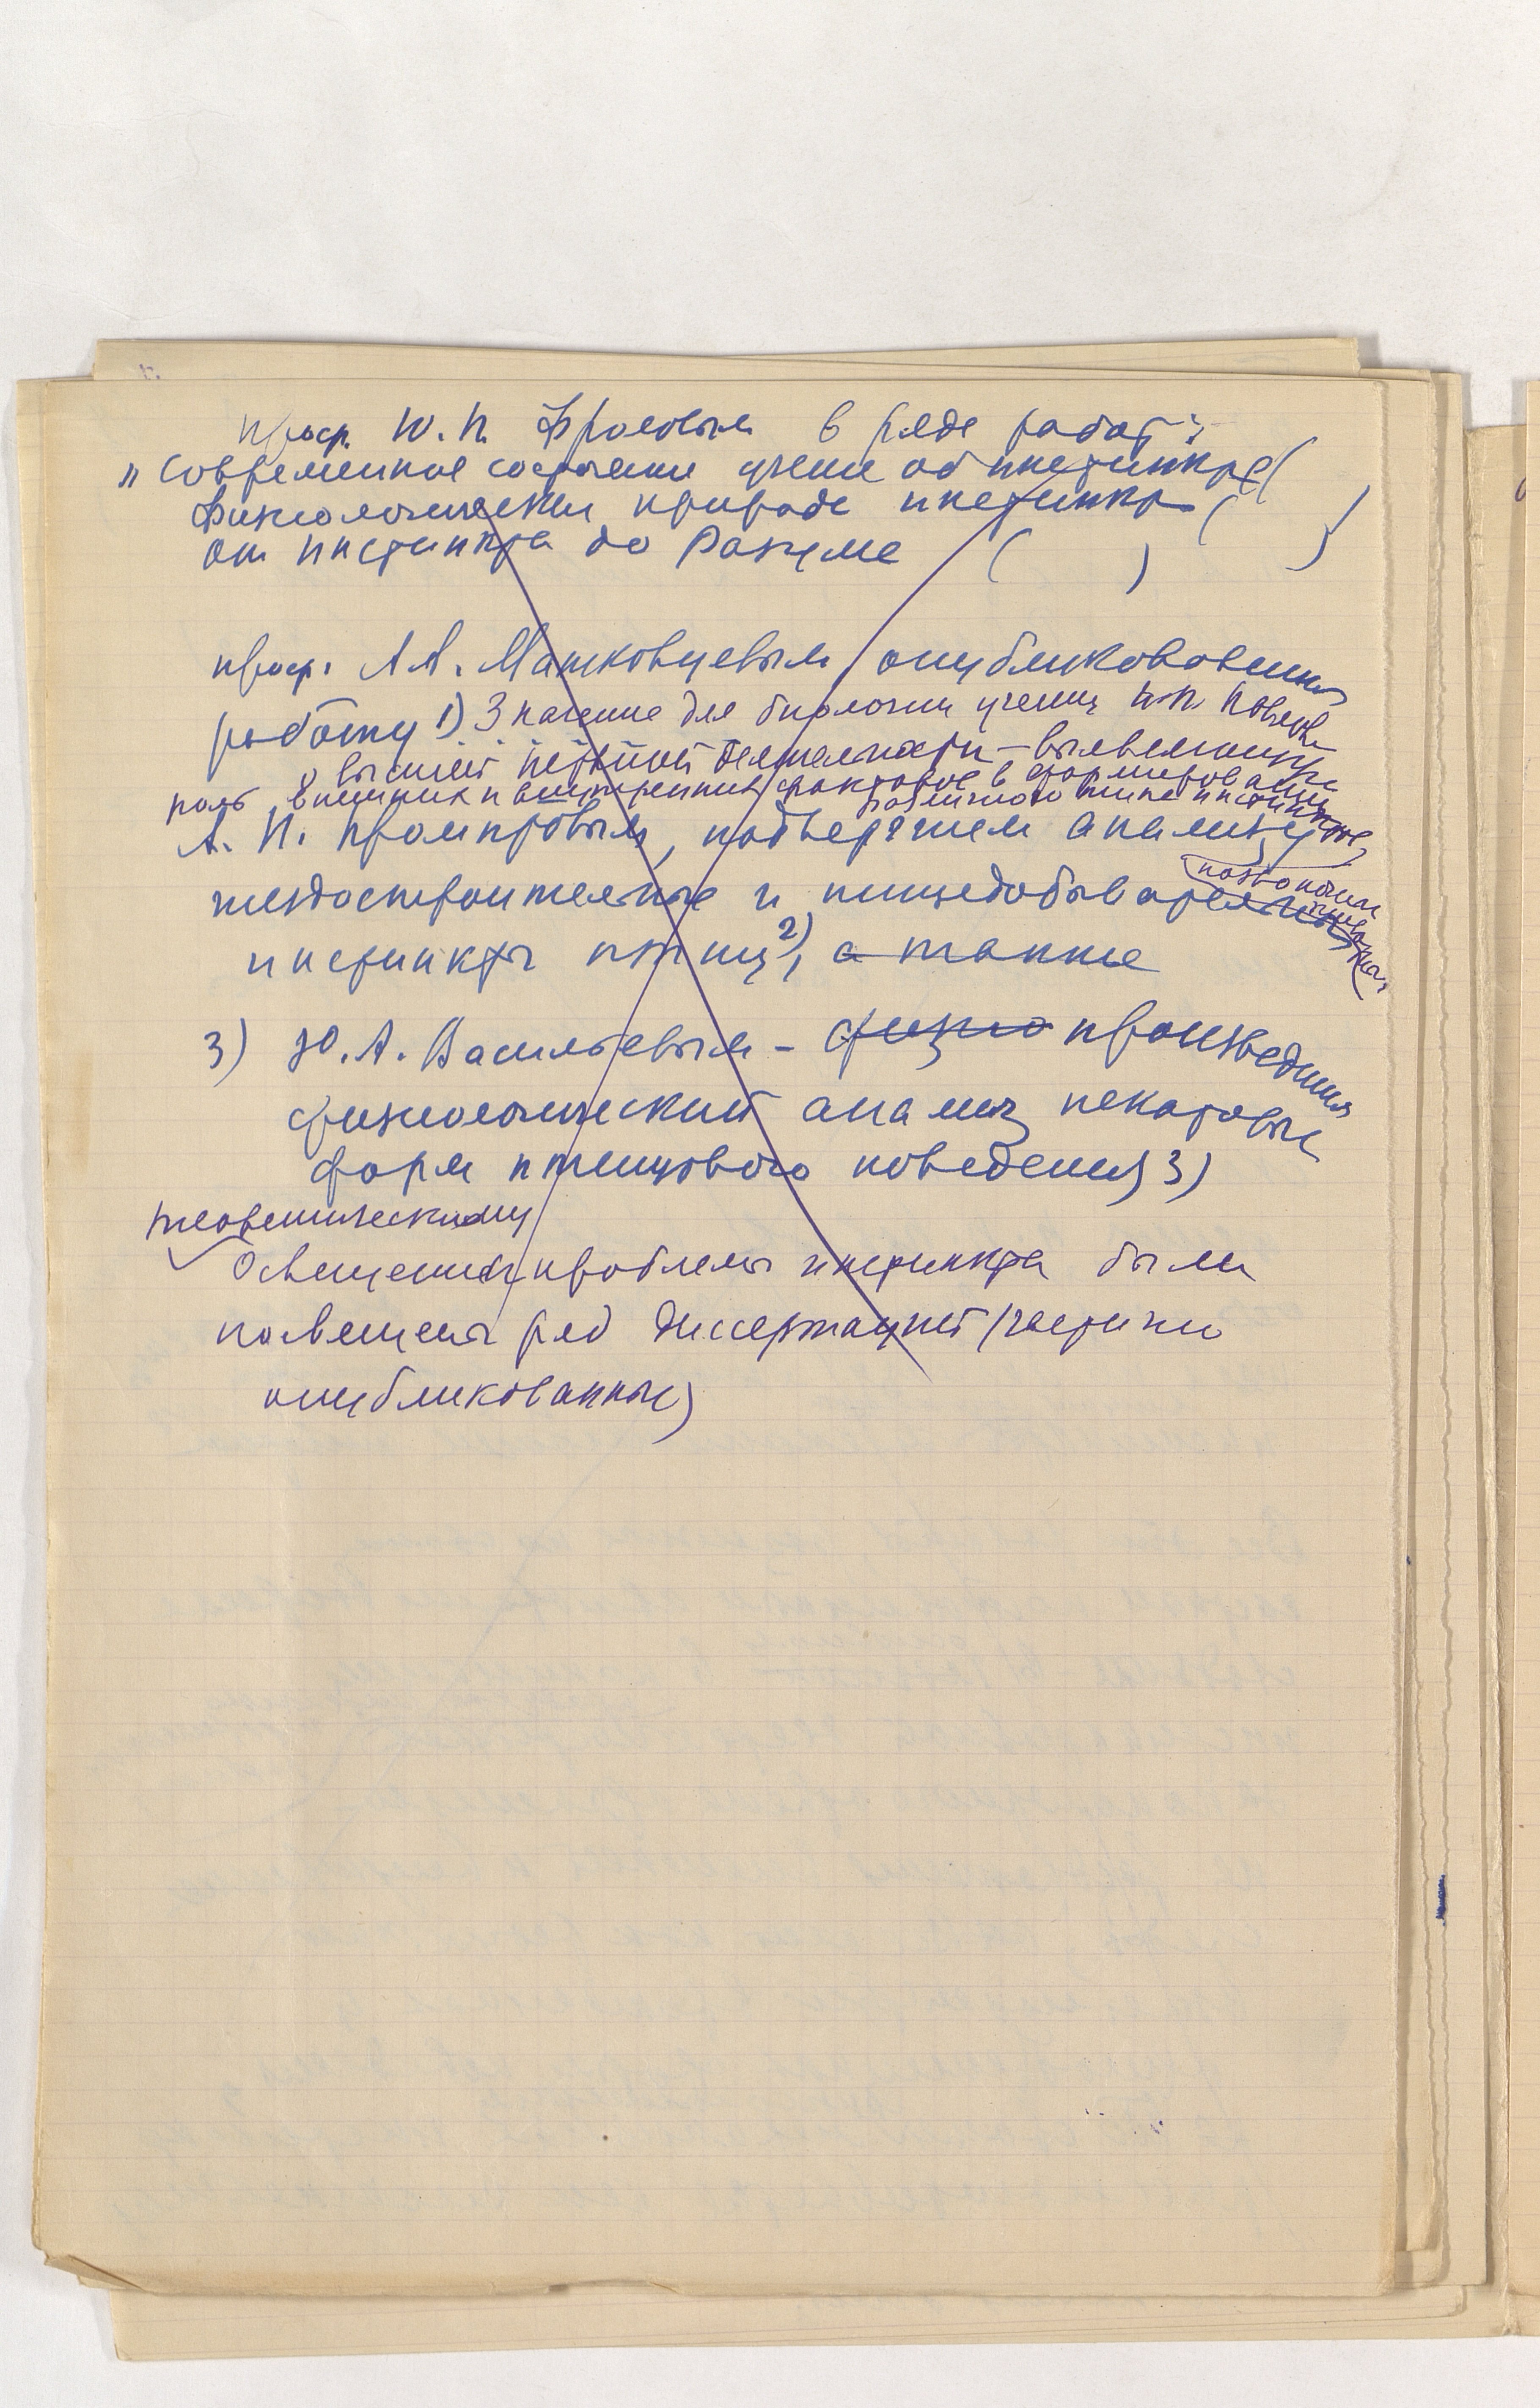 проф. Ю. П. Фроловым в ряде работ:
„Современное состояние учения об инстинкте (
Физиологическая природа инстинкта ( )
от инстинкта до разума ( )
проф. А.А. Машковцевым опубликовавшим
работу 1) Значение для биологии учения И.П. Павлова
о высшей нервной деятельности —
роль внешних и внутренних факторов в формировании
различного типа инстинктов,
А. Н. Промптовым, подвергшем анализу
(позвоночных
животных)
гнездостроительные и пищедобывательные
инстинкты птиц 2), а также
3) Ю. А. Васильевым – физио произведшим
физиологический анализ некоторых
форм птенцового поведения 3)
теоретическому
Освещению проблемы инстинкта были
посвящены ряд диссертаций (частично
опубликованных)